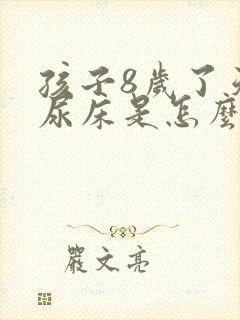 孩子8歲了
尿床是怎麼
嚴文亮